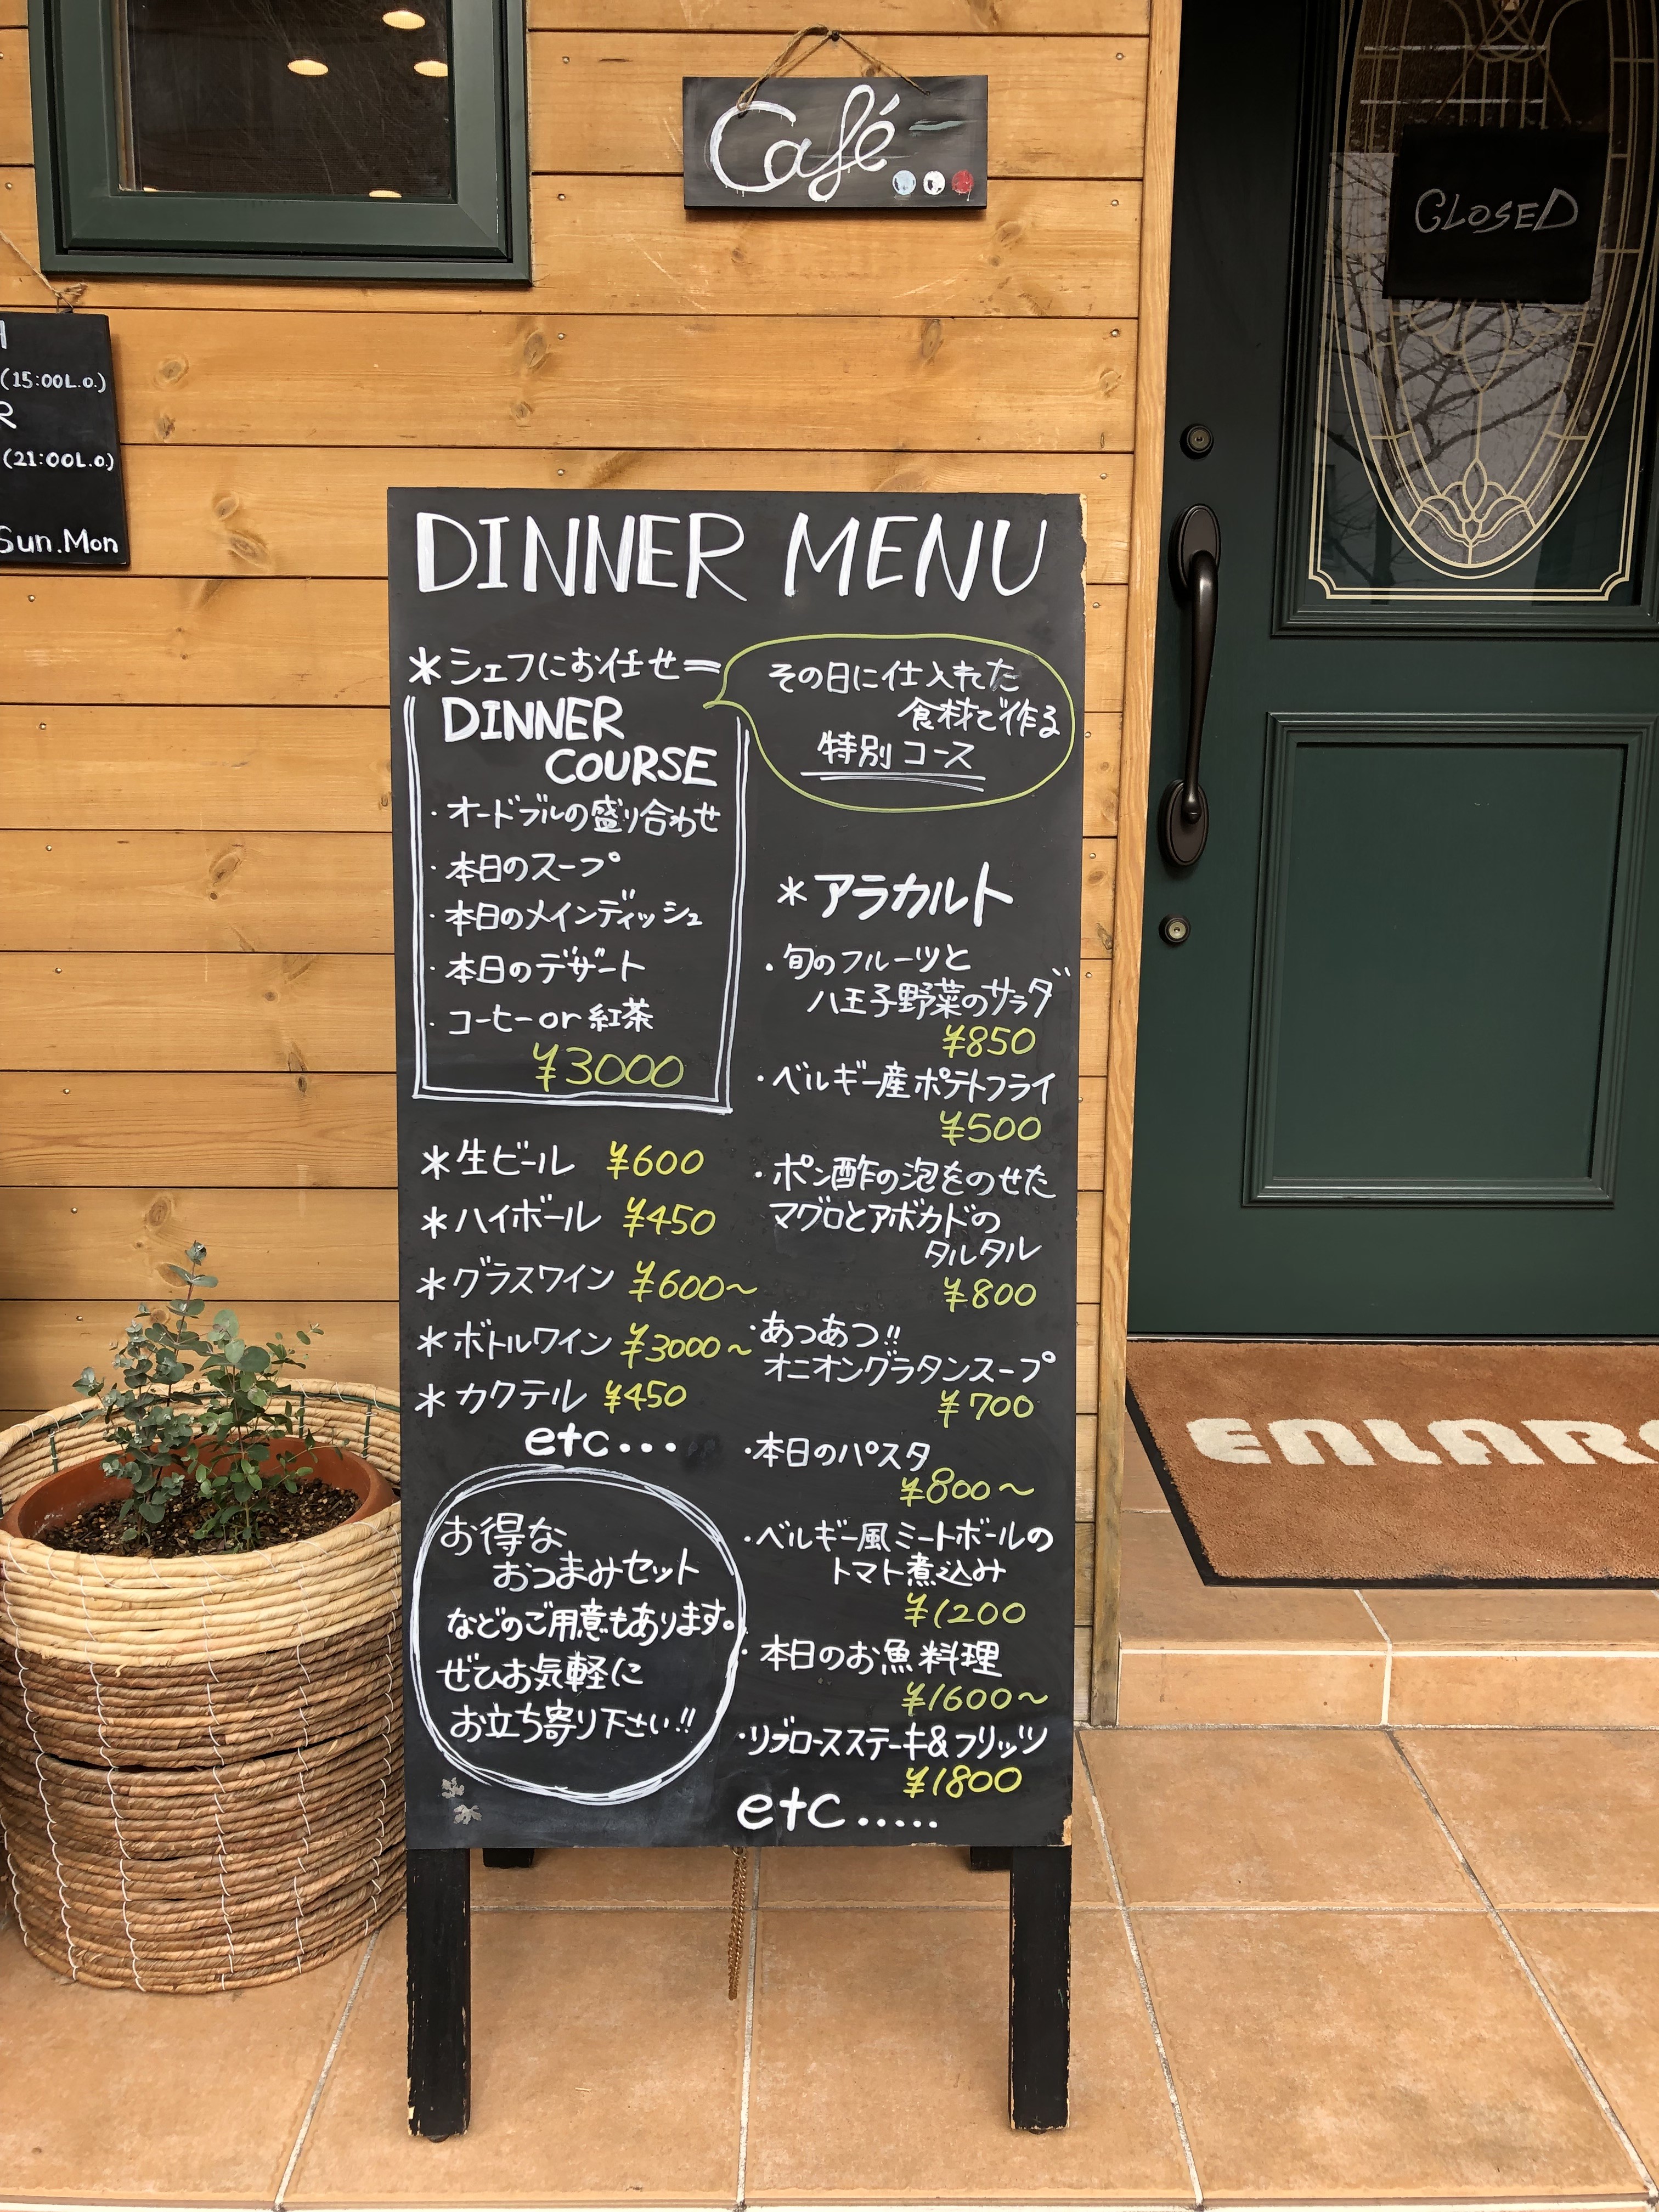 Café
CLOSED
(15:00L.O.)
R
(21:00L.O.)
Sun.Mon
DINNER MENU
*シェフにお任せ=
DINNER
COURSE
・オードブルの盛り合わせ
・本日のスープ
・本日のメインディッシュ
・本日のデザート
・コーヒーor紅茶
¥3000
その日に仕入れた
食材で作る
特別コース
*生ビール ¥600
*ハイボール ¥450
*グラスワイン ¥600~
*ボトルワイン ¥3000~
*カクテル ¥450
etc...
お得な
おつまみセット
などのご用意もあります。
ぜひお気軽に
お立ち寄り下さい!!
*アラカルト
・旬のフルーツと
八王子野菜のサラダ
¥850
・ベルギー産ポテトフライ
¥500
・ポン酢の泡をのせた
マグロとアボカドの
タルタル
¥800
・あつあつ!!
オニオングラタンスープ
¥700
・本日のパスタ
¥800~
・ベルギー風ミートボールの
トマト煮込み
¥1200
・本日のお魚料理
¥1600~
・リブロースステーキ&フリッツ
¥1800
etc.....
ENLARG